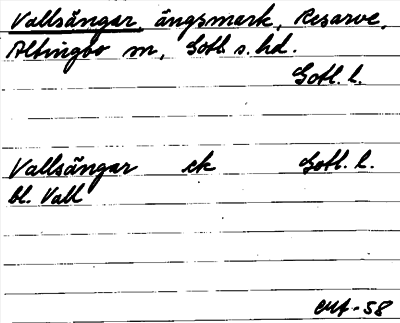 Vallsängar, ängsmark, Resarve,
Altingbo m, Gotl s. hd.
Gotl. l.
Vallsängar ek Gotl. l.
bl. Vall
-58